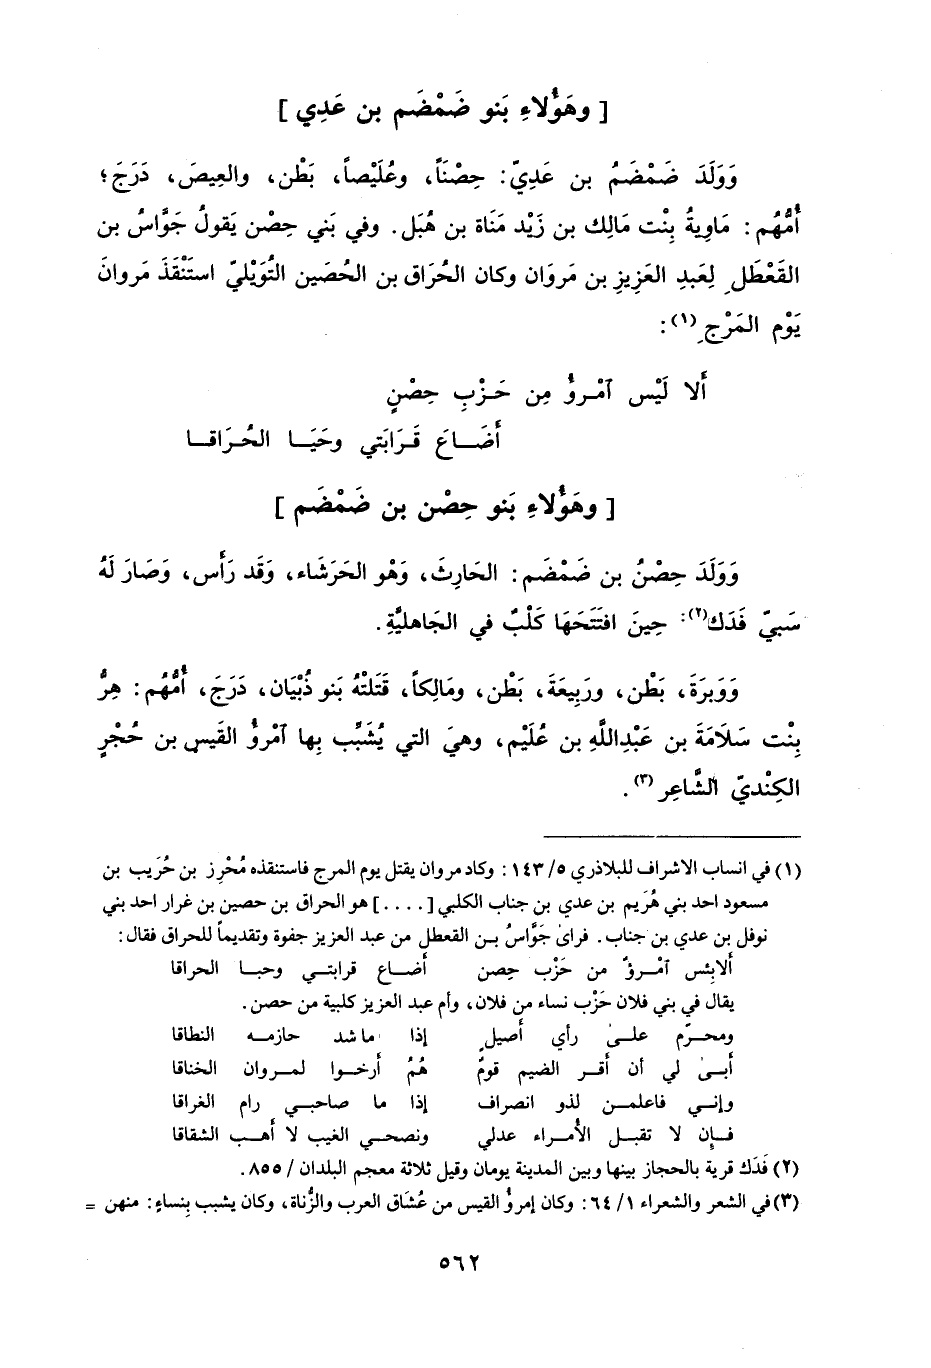 [ وهَؤُلاءِ بَنو ضَمْضَم بن عَدِي ]
وَوَلَدَ ضَمْضَمُ بن عَدِيّ: حِصْنَاً، وعُلَيْصاً، بَطْن، والعِيصَ، دَرَجَ؛
أُمُّهُم: مَاوِيةُ بِنْت مَالِك بن زَيْد مَنَاة بن هُبَل. وفي بَني حِصْن يَقولُ جَوَّاسُ بن
القَعْطَلِ لِعَبدِ العَزِيزِ بن مَروَان وكان الحُرَاق بن الحُصَين التُوَيْليّ استَنْقَذَ مَروانَ
يَوْم المَرْجِ (١):
أَلا لَيْس آمْـرؤٌ مِن حَـزْبِ حِصْنٍ
أَضَــاعَ قَـرَابَتي وحَيَـا الحُـرَاقـا
[ وهَؤُلاءِ بَنو حِصْن بن ضَمْضَم ]
وَوَلَدَ حِصْنُ بن ضَمْضَم: الحَارِثَ، وَهْو الحَرَشَاء، وَقَد رَأَس، وَصَارَ لَهُ
سَبيّ فَدَك(٢): حِينَ افتَتَحَهَا كَلْبٌ في الجَاهليَّةِ.
وَوَبرَةَ، بَطْن، ورَبِيعَةَ، بَطْن، ومَالِكاً، قَتَلتْهُ بَنو ذُبْيَان، دَرَجَ، أُمُّهُم: هِرُّ
بِنْت سَلَامَةَ بن عَبْدِاللَّهِ بن عُلَيْم، وهيَ التي يُشَبِّب بِها آمْرؤُ القَيسِ بن حُجْرٍ
الكِنْديّ الشَّاعِر (٣).
(١) في انساب الاشراف للبلاذري ٥/١٤٣: وكاد مروان يقتل يوم المرج فاستنقذه مُحْرِز بن حُرَيب بن
مسعود احد بني هُرَيم بن عدي بن جناب الكلبي [....] هو الحراق بن حصين بن غرار احد بني
نوفل بن عدي بن جناب. فراىٰ جَوَّاسُ بـن القعطل من عبد العزيز جفوة وتقديماً للحراق فقال:
ألابئس آمـرؤٌ من حَزْب حِصن أضــاع قرابتـي وحبـا الحراقا
يقال في بني فلان حَزْب نساء من فلان، وأم عبد العزيز كلبية من حصن.
ومحـرّم علـىٰ رأي أصيلٍ إذا ما شد حازمـه النطاقا
أبـىٰ لي أن أقـر الضيم قومٌ هُمُ أرخـوا لمـروان الخناقا
وإنـي فاعلمـن لذو انصراف إذا ما صاحبـي رام الغراقا
فـإن لا تقبـل الأمـراء عدلي ونصحـي الغيب لا أهـب الشقاقا
(٢) فَدَك قرية بالحجاز بينها وبين المدينة يومان وقيل ثلاثة معجم البلدان / ٨٥٥.
(٣) في الشعر والشعراء ١/ ٦٤: وكان إمرؤُ القيس من عُشاق العرب والزُّناة، وكان يشبب بِنساءٍ: منهن =
٥٦٢